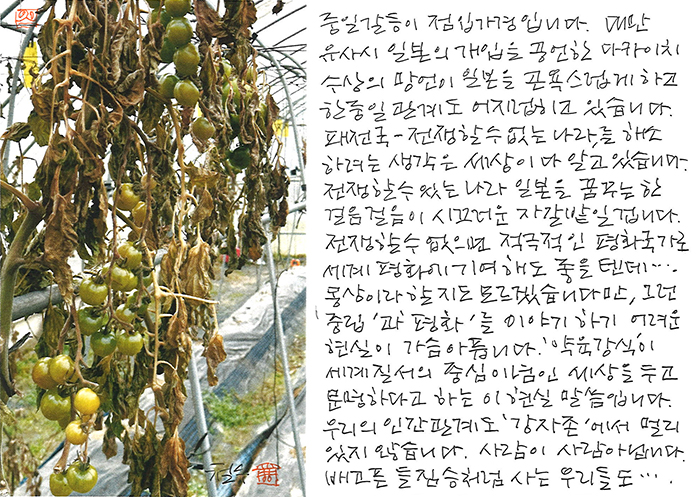 중일갈등이 점입가경입니다. 대만
유사시 일본의 개입을 공언한 다카이치
수상의 망언이 일본을 곤욕스럽게 하고
한중일 관계도 어지럽히고 있습니다.
패전국-전쟁할 수 없는 나라,를 해소
하려는 생각은 세상이 다 알고 있습니다.
전쟁할 수 있는 나라 일본을 꿈꾸는 한
걸음걸음이 시끄러운 자갈밭일겁니다.
전쟁할 수 없으면 적극적인 평화국가로
세계 평화에 기여해도 좋을텐데….
몽상이라 할지도 모르겠습니다만, 그런
중립 '과' 평화 '를 이야기 하기 어려운
현실이 가슴아픕니다. '약육강식'이
세계질서의 중심이념인 세상을 두고
문명하다고 하는 이 현실 말씀입니다.
우리의 인간관계도 '강자존'에서 멀리
있지 않습니다. 사람이 사람아닙니다.
배고픈 들짐승처럼 사는 우리들도….
철수